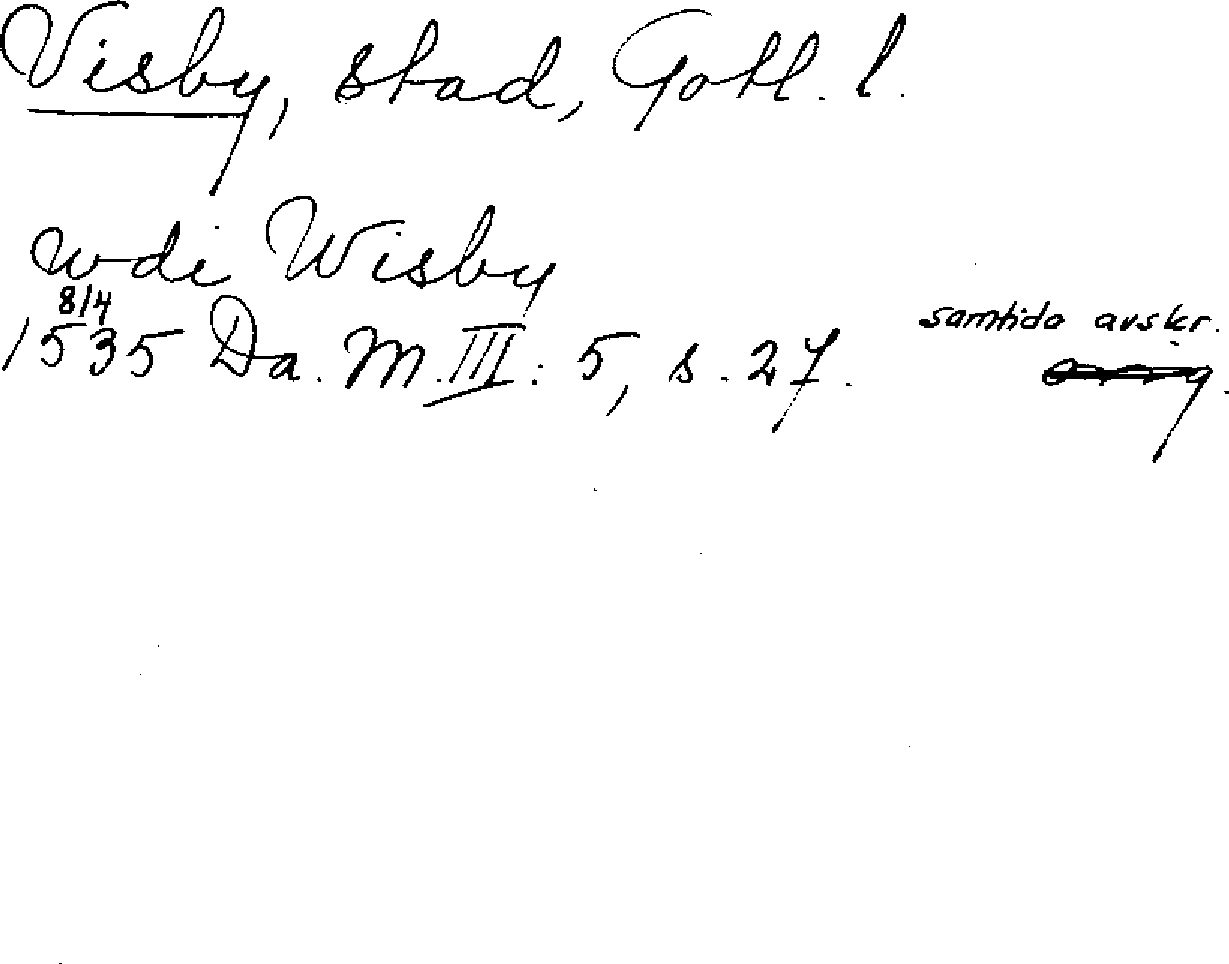 Visby, stad, Gotl. l.
wdi Wisby
8/4
1535 Da. M. III: 5, s. 27.
samtida avskr.